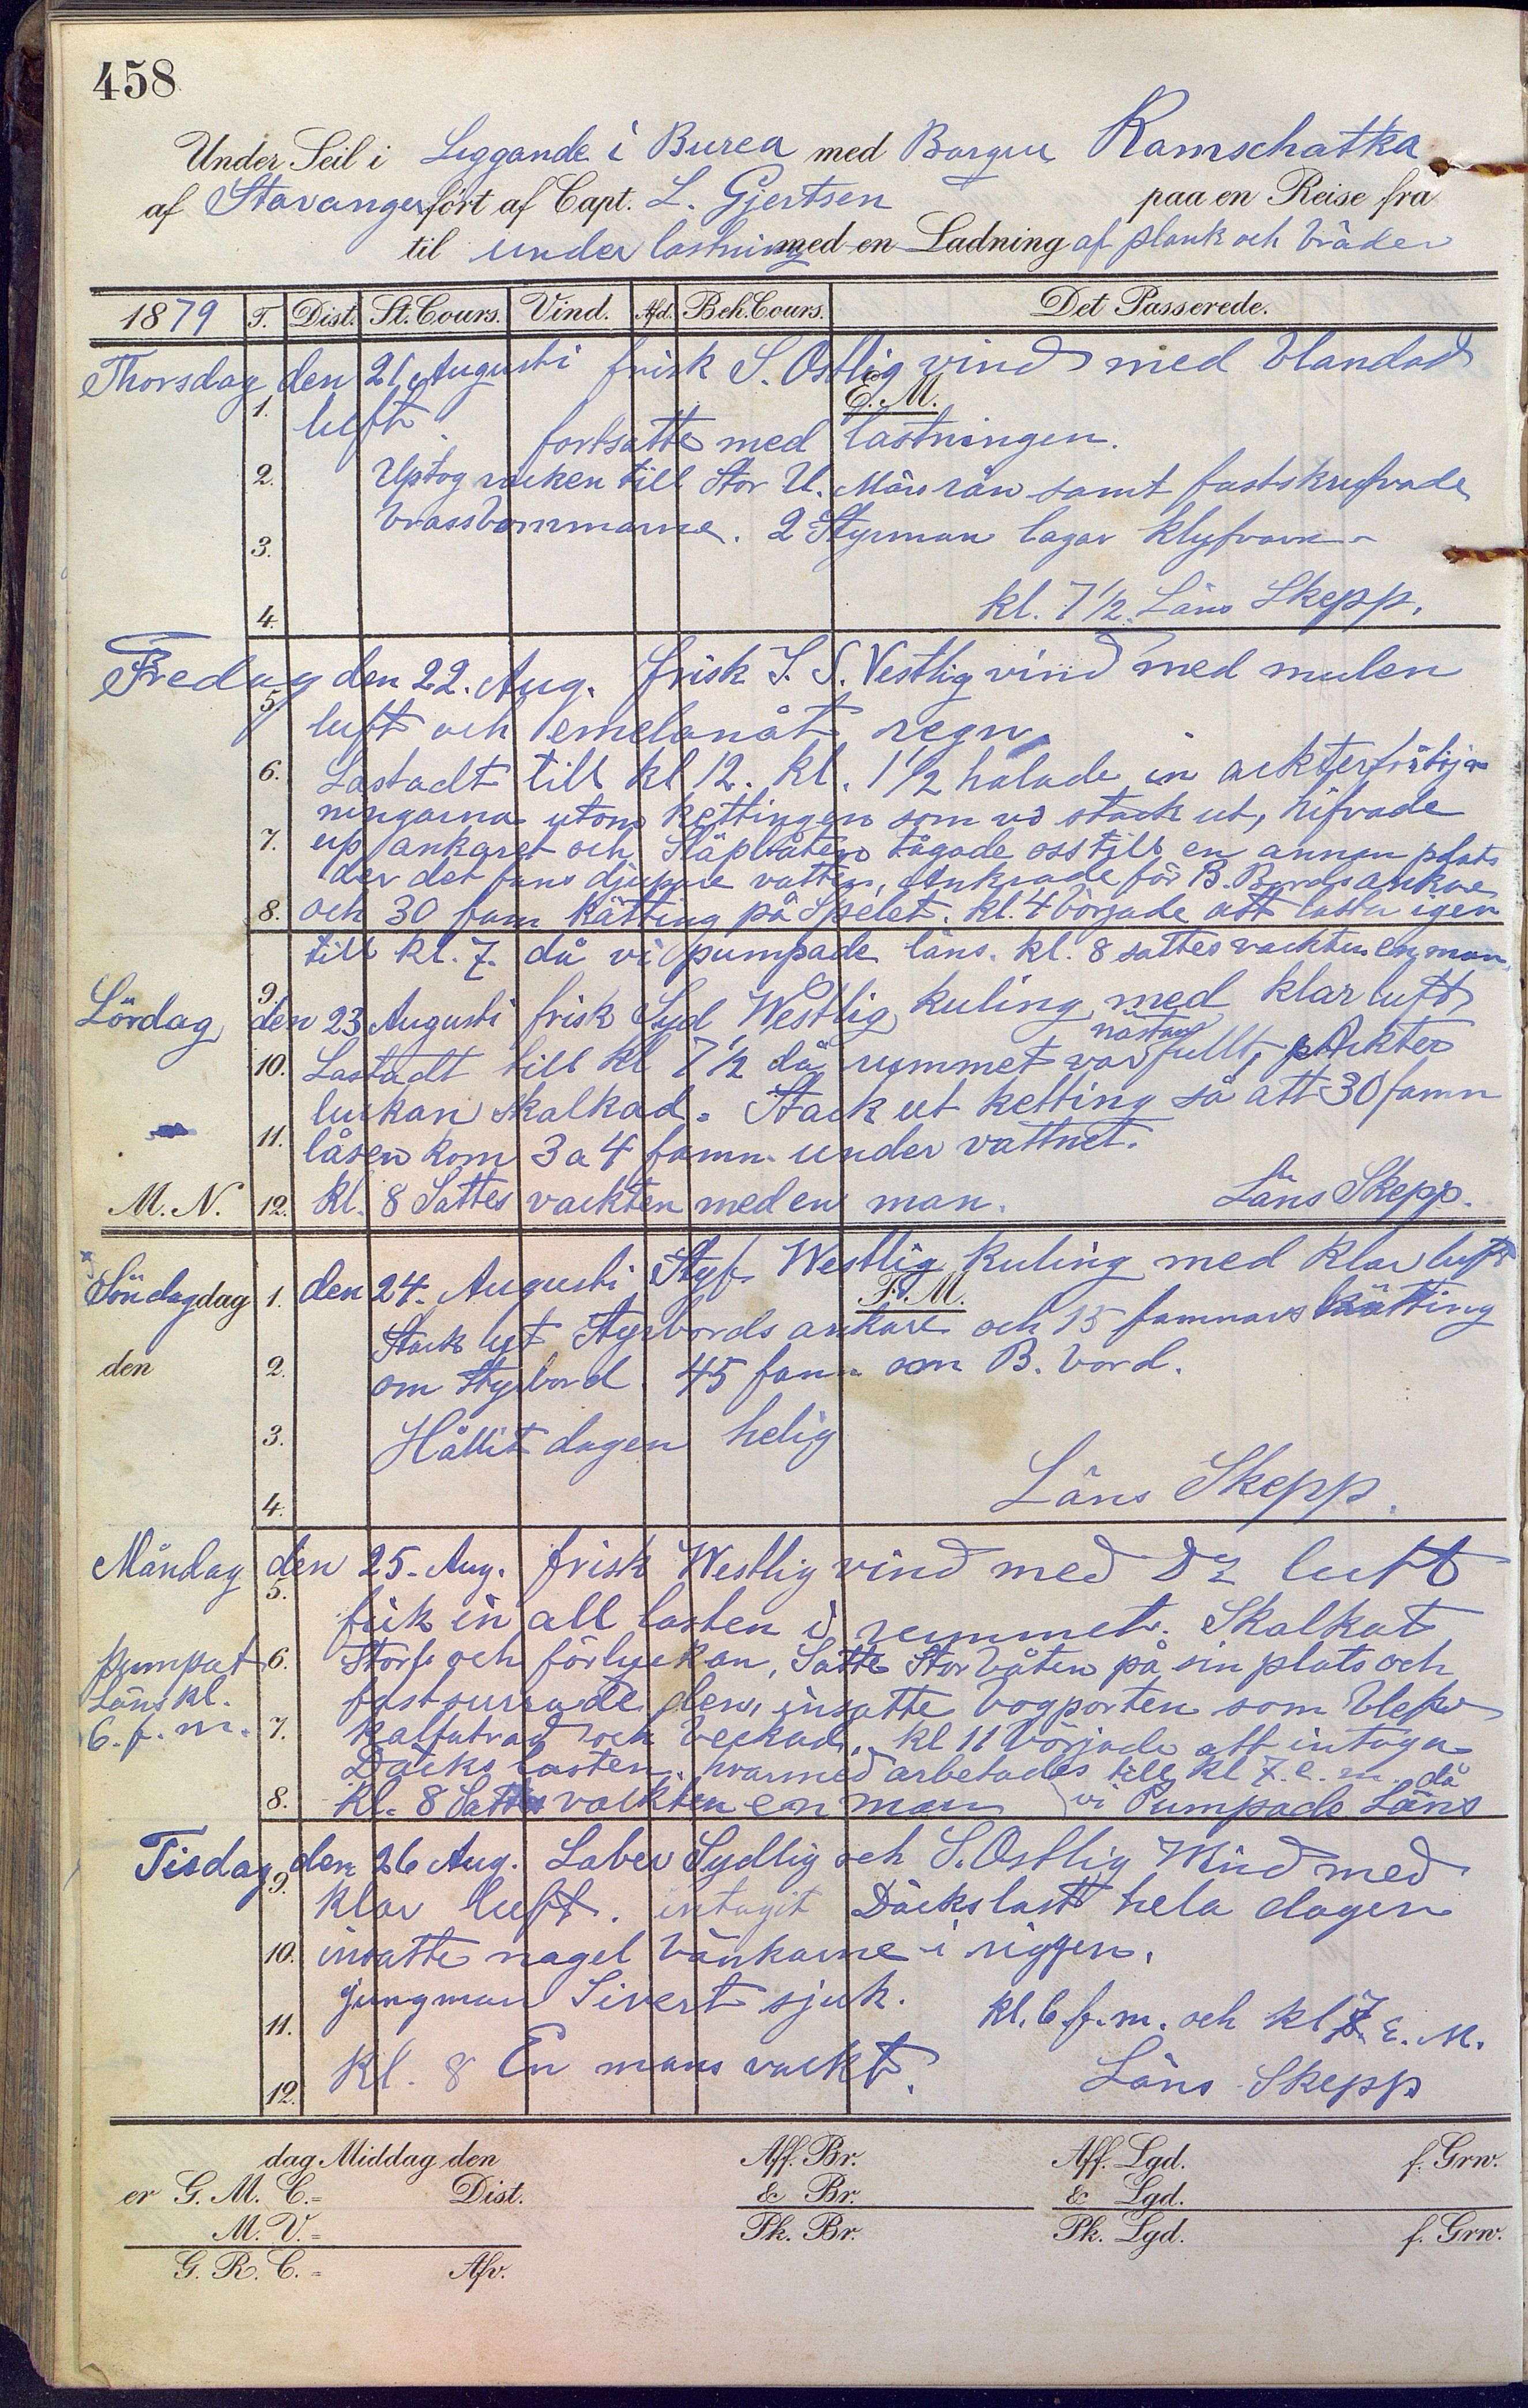 458
Under Seil i Liggande i Burea med Barque Kamschatka
af Stavanger fört af Capt. L. Gjertsen paa en Reise fra
til under lastning med en Ladning af plank och bräder
1879 T. Dist. St. Cours. Vind. Afd. Beh. Cours. Det Passerede.
Thorsdag den 21 Augusti frisk S. Ostlig vind med blandad
E. M.
1. luft. fortsatte med lastningen.
2. Uptog racken till Stor U. Märs rån samt fastskrufvade
brassbommarne. 2 Styrman lagar klyfvaren
3.
4. kl. 7 1/2. Läns Skepp.
Fredag den 22. Aug. frisk S. S. Vestlig vind med mulen
5. luft och emelanåt regn.
6. Lastadt till kl 12. kl. 1 1/2 halade in ackterförtöj-
ningarna utom kettingen som vi stack ut, hifvade
7. up ankaret och Släpbåten bågade oss till en annan plats
der det fans djupare vatten, Ankrade för B. Bords ankare
8. och 30 famn kätting på Spelet. kl. 4 började att lasta igen
till kl. 7. då vi pumpade läns. kl. 8 sattes vackten en man.
9.
Lördag den 23 Augusti frisk Syd Westlig kuling med klar luft
nästan
10. Lastadt till kl 7 1/2 då rummet var fullt, Ackter
luckan skalkad. Stack ut ketting så att 30 famn
11. låsen kom 3 a 4 famn under vattnet.
M. N. 12. kl. 8 Sattes vackten med en man. Läns Skepp.
Söndag dag 1. den 24. Augusti Styf Westlig kuling med klar luft
F. M.
Stack ut Styrbords ankare och 15 famnars kätting
den 2. om Styrbord 45 famn om B. bord.
3. Hållit dagen helig
4. Läns Skepp.
Måndag den 25. Aug. frisk Westlig vind med Do luft
5. fick in all lasten i rummet. Skalkat
pumpat 6. Stor- och förluckan, Satte Storbåten på sin plats och
Läns kl. fastsurrade den, insatte bogporten som blef
6. f. m. 7. kalfatrad och beckad. kl 11 började att intaga
Däcks lasten. hvarmed arbetades till kl 7. e. m. då
8. kl. 8 Sattes vackten en man vi Pumpade Läns
Tisdag den 26 Aug. Laber Sydlig och S. Ostlig Wind med
9. klar luft. intagit Däckslast hela dagen
10. insatte nagel bänkarne i riggen.
jungman Sivert sjuk. kl. 6 f. m. och kl 7. E. M.
11.
12. kl. 8 En mans vackt. Läns Skepp
dag Middag den Aff. Br. Aff. Lgd. f. Grw.
er G. M. C. = Dist. & Br. & Lgd.
M. V. = Pk. Br. Pk. Lgd. f. Grw.
G. R. C. = Afv.